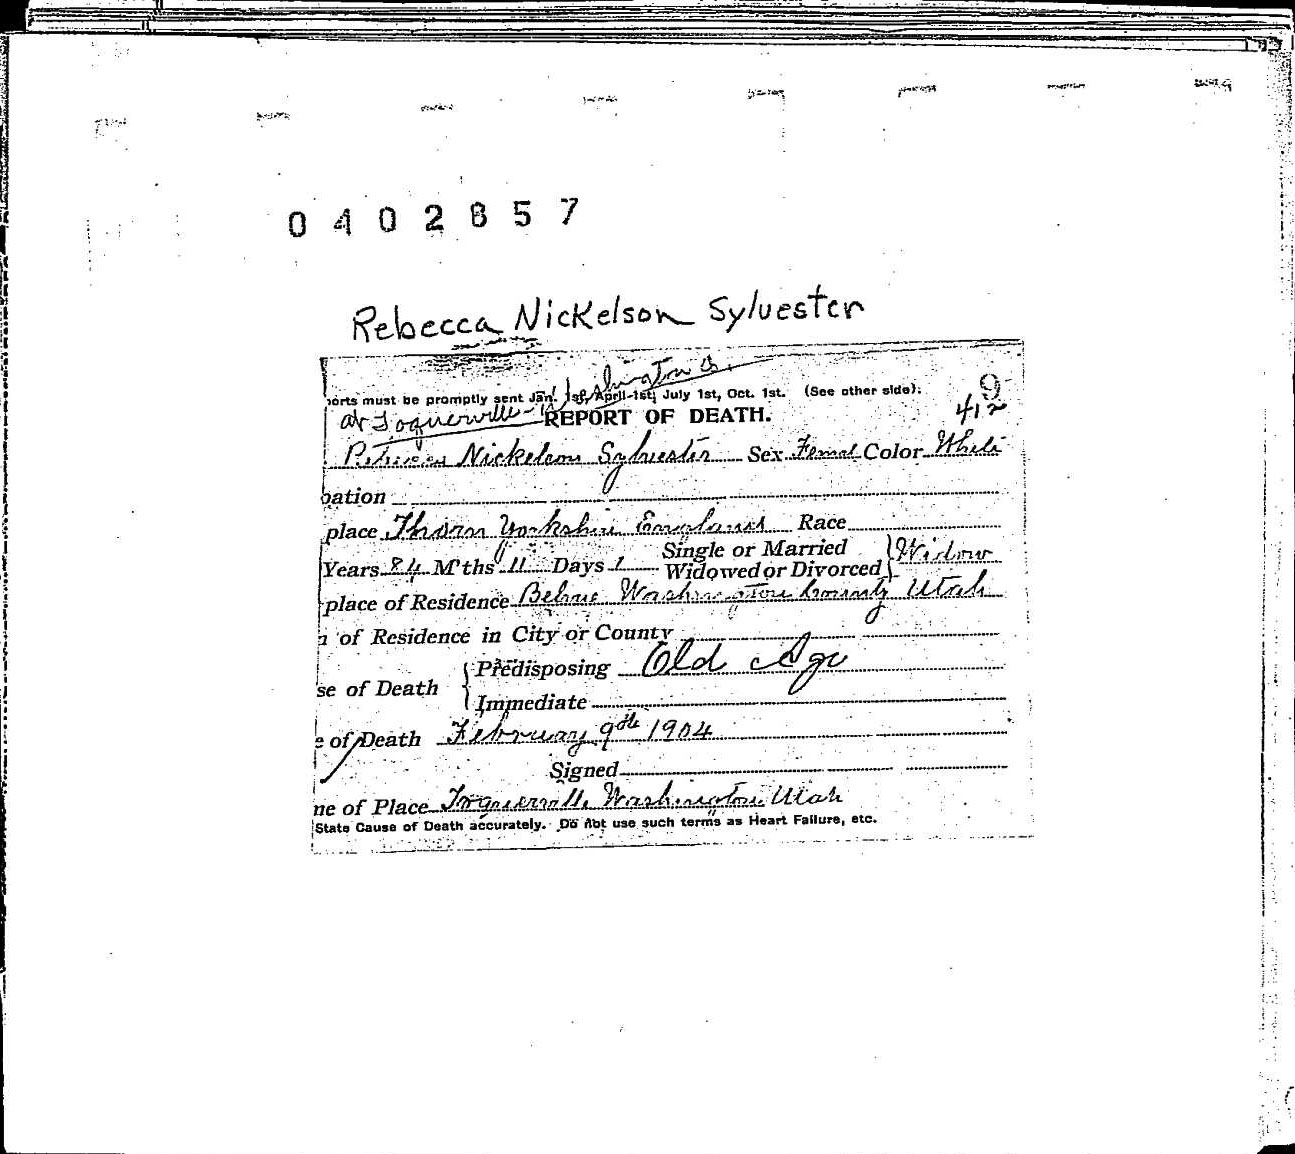 0402857
Rebecca Nickelson Sylvester
Washington Co.
orts must be promptly sent Jan. 1st, April 1st, July 1st, Oct. 1st. (See other side).
9
at Toquerville
REPORT OF DEATH.
412
Rebecca Nickelson Sylvester Sex Femal Color White
pation
place Thorn Yorkshire England Race
Years 84 M'ths 11 Days 1 Single or Married Widowed or Divorced } Widow
place of Residence Washington County Utah
n of Residence in City or County
se of Death { Predisposing Old Age
Immediate
e of Death February 9th 1904
Signed
ne of Place Toquerville Washington Utah
State Cause of Death accurately. Do not use such terms as Heart Failure, etc.